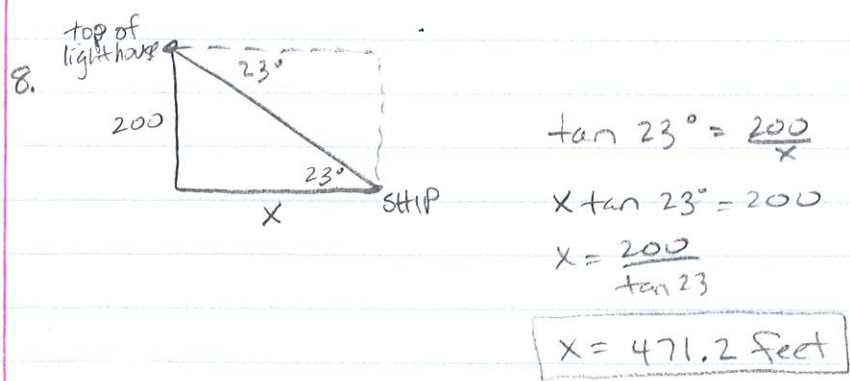 top of
lighthouse
8.
23°
200
23°
SHIP
X
tan 23° = 200/x
x tan 23° = 200
x = 200/tan 23
x = 471.2 feet